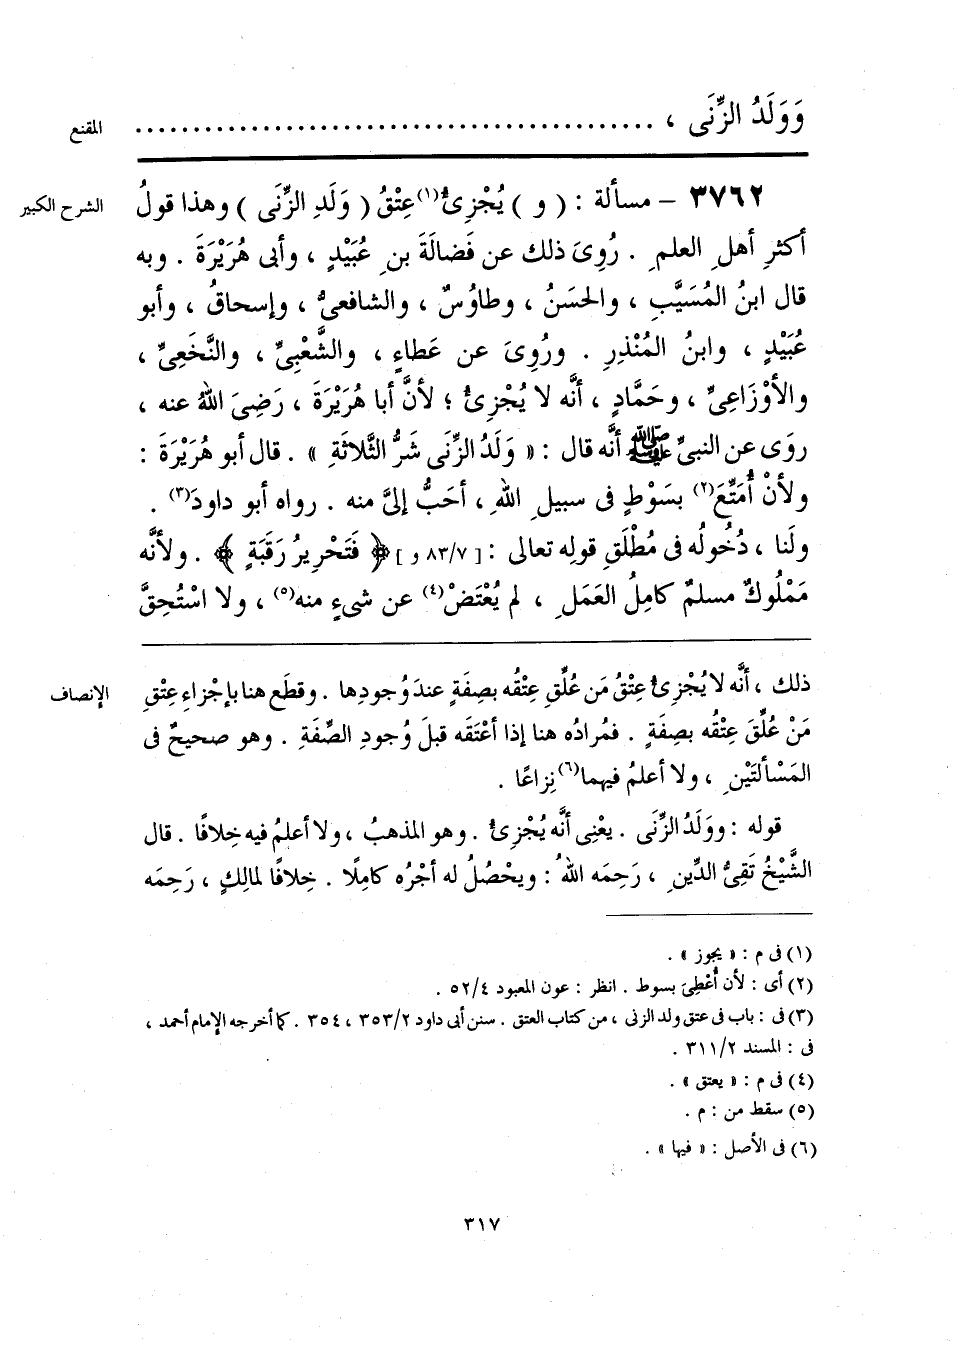 وَوَلَدُ الزِّنَى ، ............................................. المقنع
٣٧٦٢ – مسألة : ( و ) يُجْزِئُ(١) عِتْقُ ( وَلَدِ الزِّنَى ) وهذا قولُ الشرح الكبير
أكثرِ أهلِ العلمِ . رُوِىَ ذلك عن فَضالَةَ بنِ عُبَيْدٍ ، وأبى هُرَيْرَةَ . وبه
قال ابنُ المُسَيَّبِ ، والحَسَنُ ، وطاوُسٌ ، والشافعىُّ ، وإسحاقُ ، وأبو
عُبَيْدٍ ، وابنُ المُنْذِرِ . ورُوِىَ عن عَطاءٍ ، والشَّعْبِىِّ ، والنَّخَعِىِّ ،
والأوْزَاعِىِّ ، وحَمَّادٍ ، أنَّه لا يُجْزِئُ ؛ لأنَّ أبا هُرَيْرَةَ ، رَضِىَ اللهُ عنه ،
روَى عن النبىِّ ﷺ أنَّه قال : « وَلَدُ الزِّنَى شَرُّ الثَّلاثَةِ » . قال أبو هُرَيْرَةَ :
ولأنْ أُمَتِّعَ(٢) بسَوْطٍ فى سبيلِ اللهِ ، أحَبُّ إلىَّ منه . رواه أبو داودَ(٣) .
ولَنا ، دُخُولُه فى مُطْلَقِ قولِه تعالى : [ ٨٣/٧ و ] ﴿ فَتَحْرِيرُ رَقَبَةٍ ﴾ . ولأنَّه
مَمْلُوكٌ مسلمٌ كامِلُ العَمَلِ ، لم يُعْتَضْ(٤) عن شىءٍ منه(٥) ، ولا اسْتُحِقَّ
ذلك ، أنَّه لا يُجْزِئُ عِتْقُ مَن عُلِّق عِتْقُه بصِفَةٍ عندَ وُجودِها . وقطَع هنا بإجْزاءِ عِتْقِ الإنصاف
مَنْ عُلِّقَ عِتْقُه بصِفَةٍ . فمُرادُه هنا إذا أعْتَقَه قبلَ وُجودِ الصِّفَةِ . وهو صحيحٌ فى
المَسْألتَيْنِ ، ولا أعلمُ فيهما(٦) نِزاعًا .
قوله : ووَلَدُ الزِّنَى . يعْنِى أنَّه يُجْزِئُ . وهو المذهبُ ، ولا أعلمُ فيه خِلافًا . قال
الشَّيْخُ تَقِىُّ الدِّينِ ، رَحِمَه اللهُ : ويحْصُلُ له أجْرُه كامِلًا . خِلافًا لمالِكٍ ، رَحِمَه
(١) فى م : « يجوز » .
(٢) أى : لأن أُعْطِىَ بسوط . انظر : عون المعبود ٥٢/٤ .
(٣) فى : باب فى عتق ولد الزنى ، من كتاب العتق . سنن أبى داود ٣٥٣/٢ ، ٣٥٤ . كما أخرجه الإمام أحمد ،
فى : المسند ٣١١/٢ .
(٤) فى م : « يعتق » .
(٥) سقط من : م .
(٦) فى الأصل : « فيها » .
٣١٧